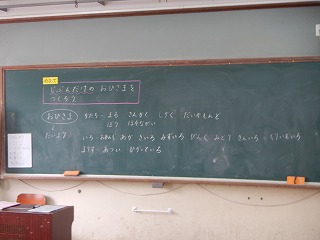 めあて
じぶんだけの おひさまを
つくろう
おひさま かたち・まる さんかく しかく だいやもんど
ほし はなみたい
たいよう いろ おれんじ あか きいろ みずいろ ぴんく みどり きんいろ
ようす・あつい ひかっている